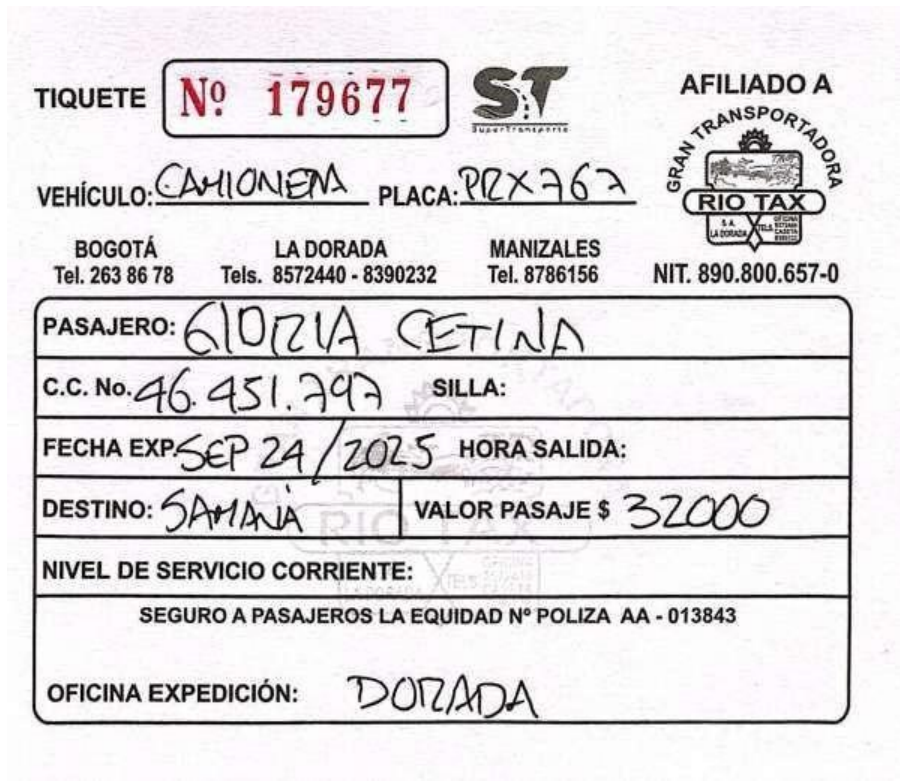 TIQUETE Nº 179677
ST
SuperTransporte
AFILIADO A
GRAN TRANSPORTADORA
RIO TAX
S.A.
LA DORADA
TELS.
OFICINA
CASETA
VEHÍCULO: CAMIONETA PLACA: PRX767
BOGOTÁ LA DORADA MANIZALES
Tel. 263 86 78 Tels. 8572440 - 8390232 Tel. 8786156 NIT. 890.800.657-0
PASAJERO: GLORIA CETINA
C.C. No. 46.451.797 SILLA:
FECHA EXP. SEP 24/2025 HORA SALIDA:
DESTINO: SAMANÁ VALOR PASAJE $ 32000
NIVEL DE SERVICIO CORRIENTE:
SEGURO A PASAJEROS LA EQUIDAD Nº POLIZA AA - 013843
OFICINA EXPEDICIÓN: DORADA